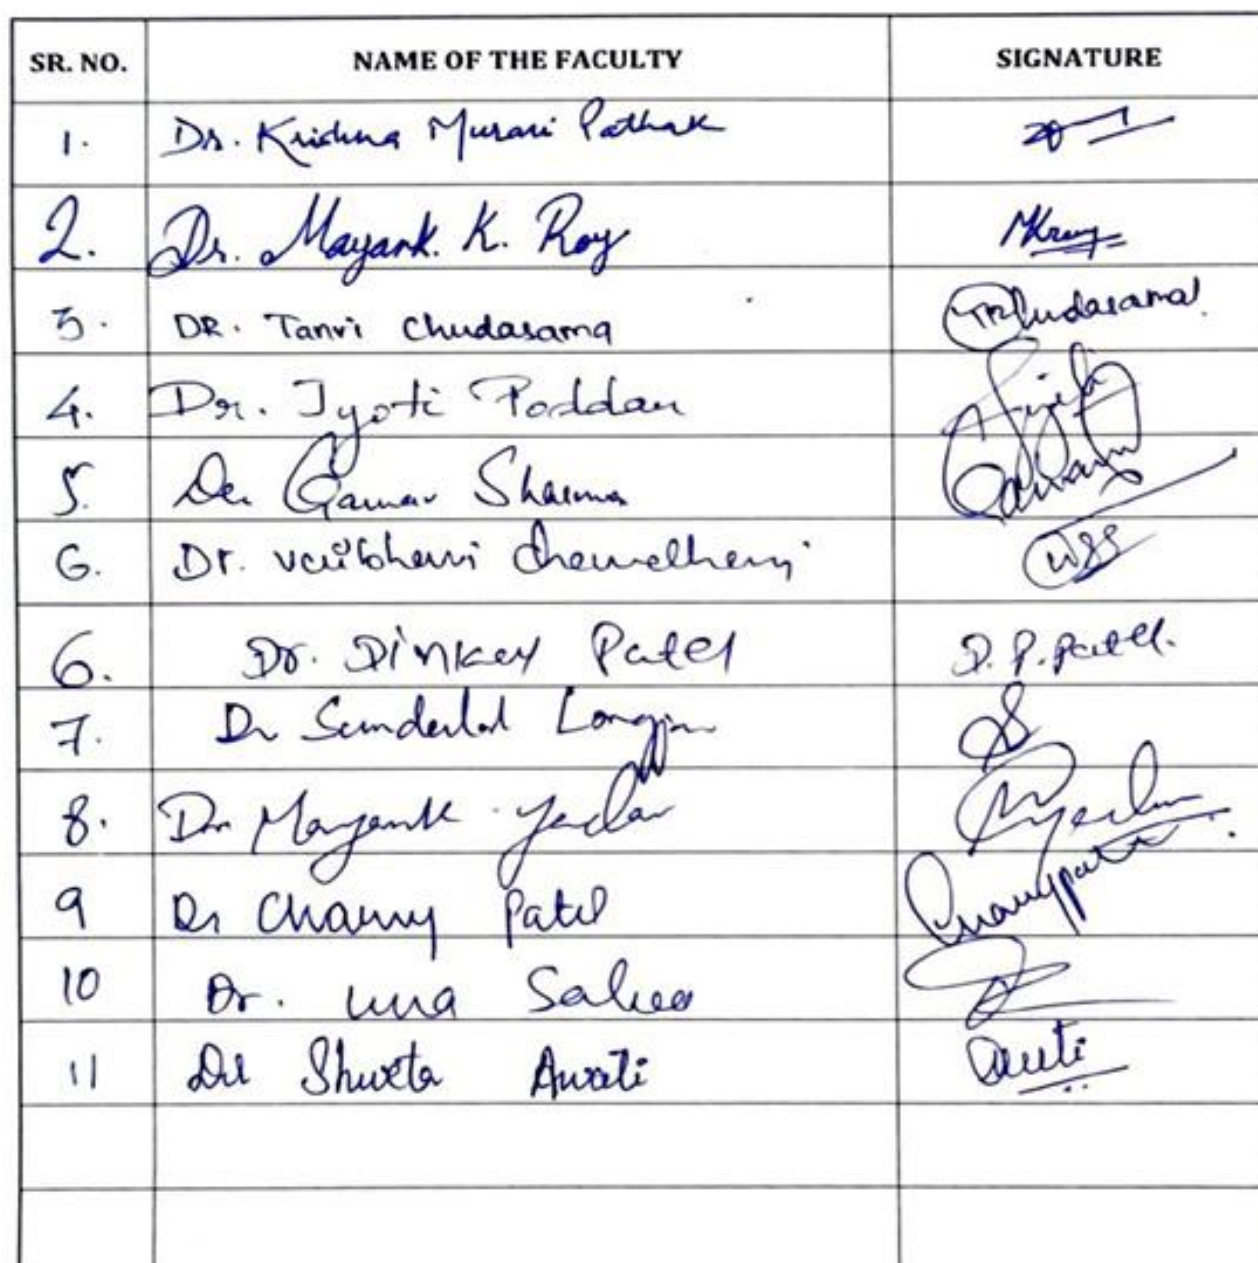 SR. NO. NAME OF THE FACULTY SIGNATURE
1. Dr. Krishna Murari Pathak
2. Dr. Mayank. K. Roy MKroy
3. DR. Tanvi Chudasama TRChudasama
4. Dr. Jyoti Poddar Jyoti
5. Dr. Gaurav Sharma Gaurav
6. Dr. Vaibhavi
6. Dr. Dinkey Patel D. P. Patel.
7. Dr Sunderlal
8. Dr Mayank Yadav
9 Dr Charmy Patel Charmypatel
10 Dr. Uma
11 Dr Shweta Awati